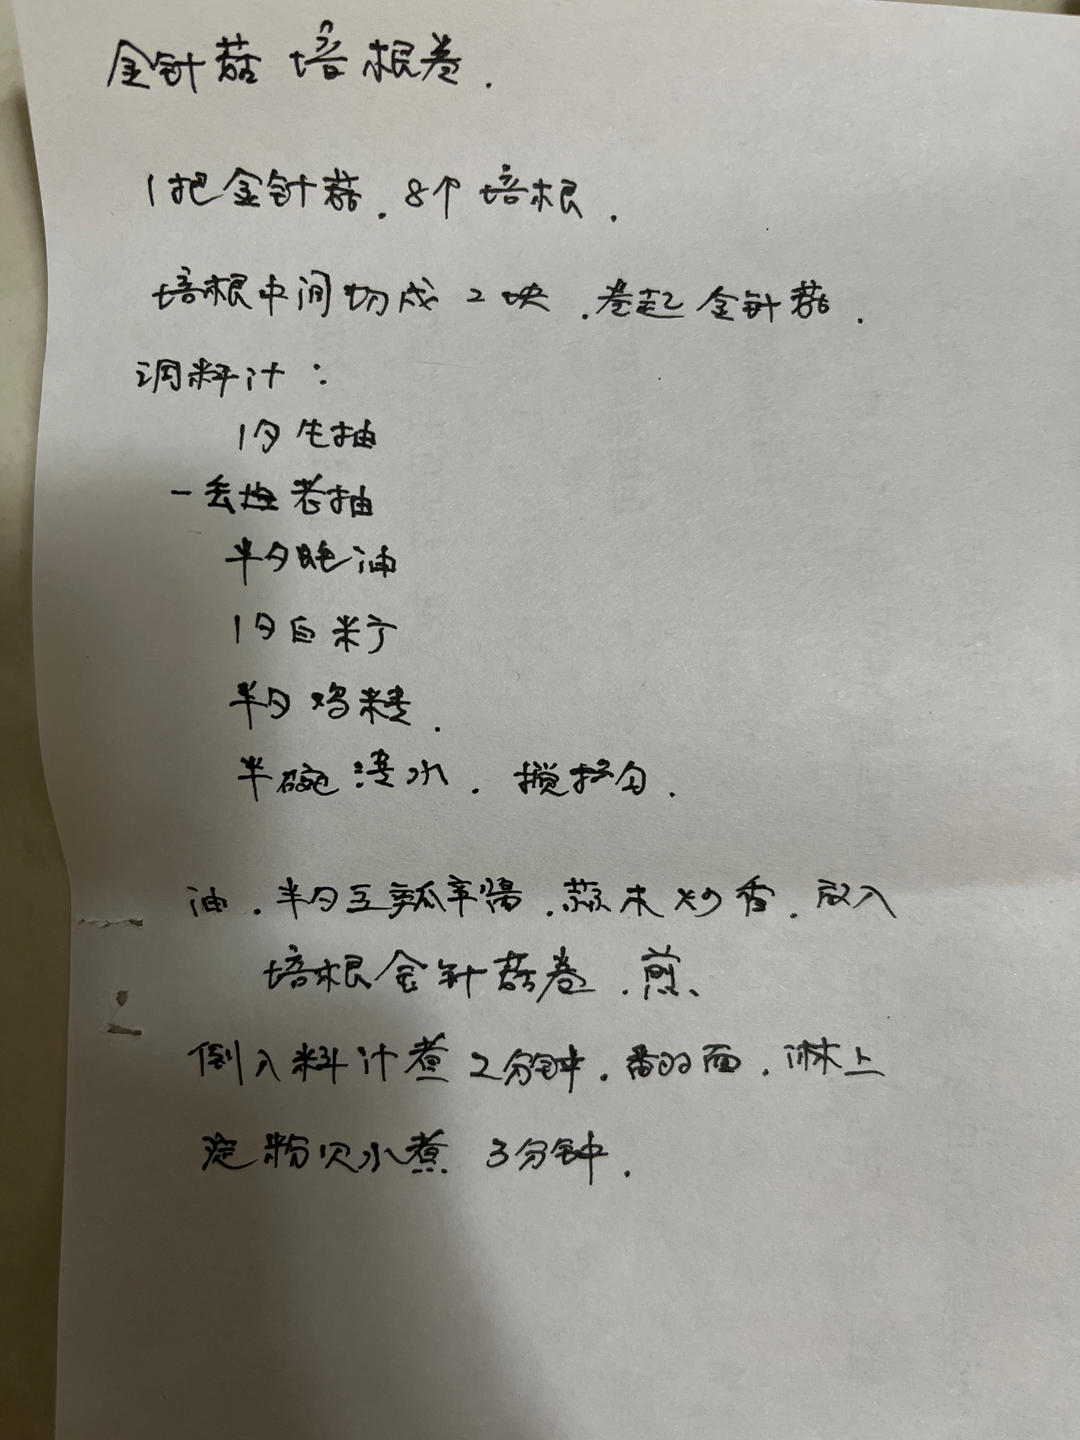 金针菇培根卷.
1把金针菇.8个培根.
培根中间切成2块.卷起金针菇.
调料汁:
1勺生抽
一丢丢老抽
半勺蚝油
1勺白糖
半勺鸡精.
半碗清水.搅拌匀.
油.半勺豆瓣酱.蒜末炒香.放入
培根金针菇卷.煎、
倒入料汁煮2分钟.翻面.淋上
淀粉水煮3分钟.